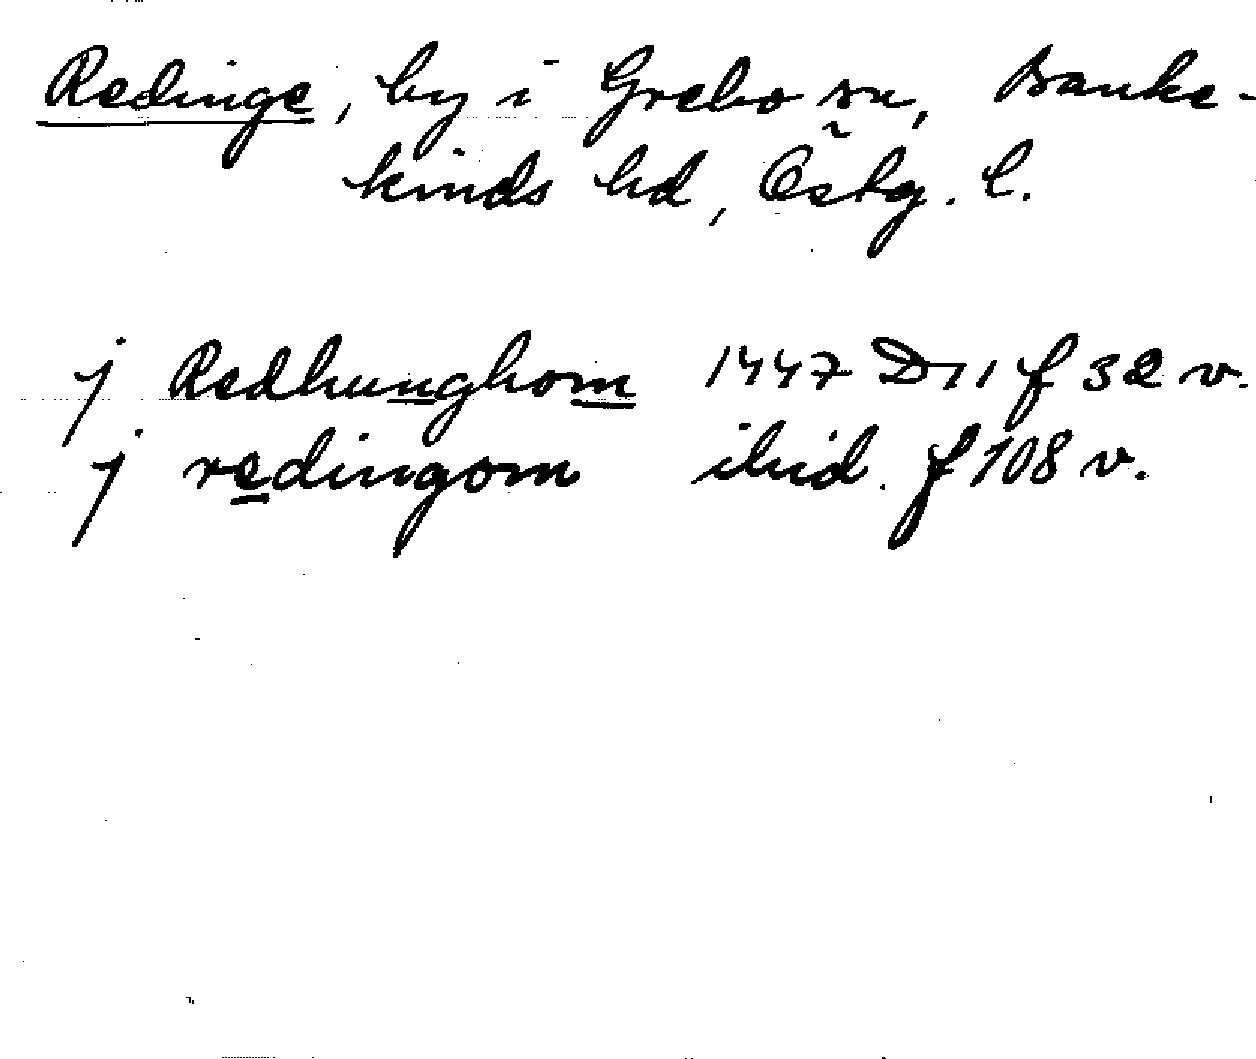 Redinge, by i Grebo sn, Banke-
kinds hd, Östg. l.
j Redhunghom 1447 D 11 f 32 v.
j redingom ibid. f 108 v.